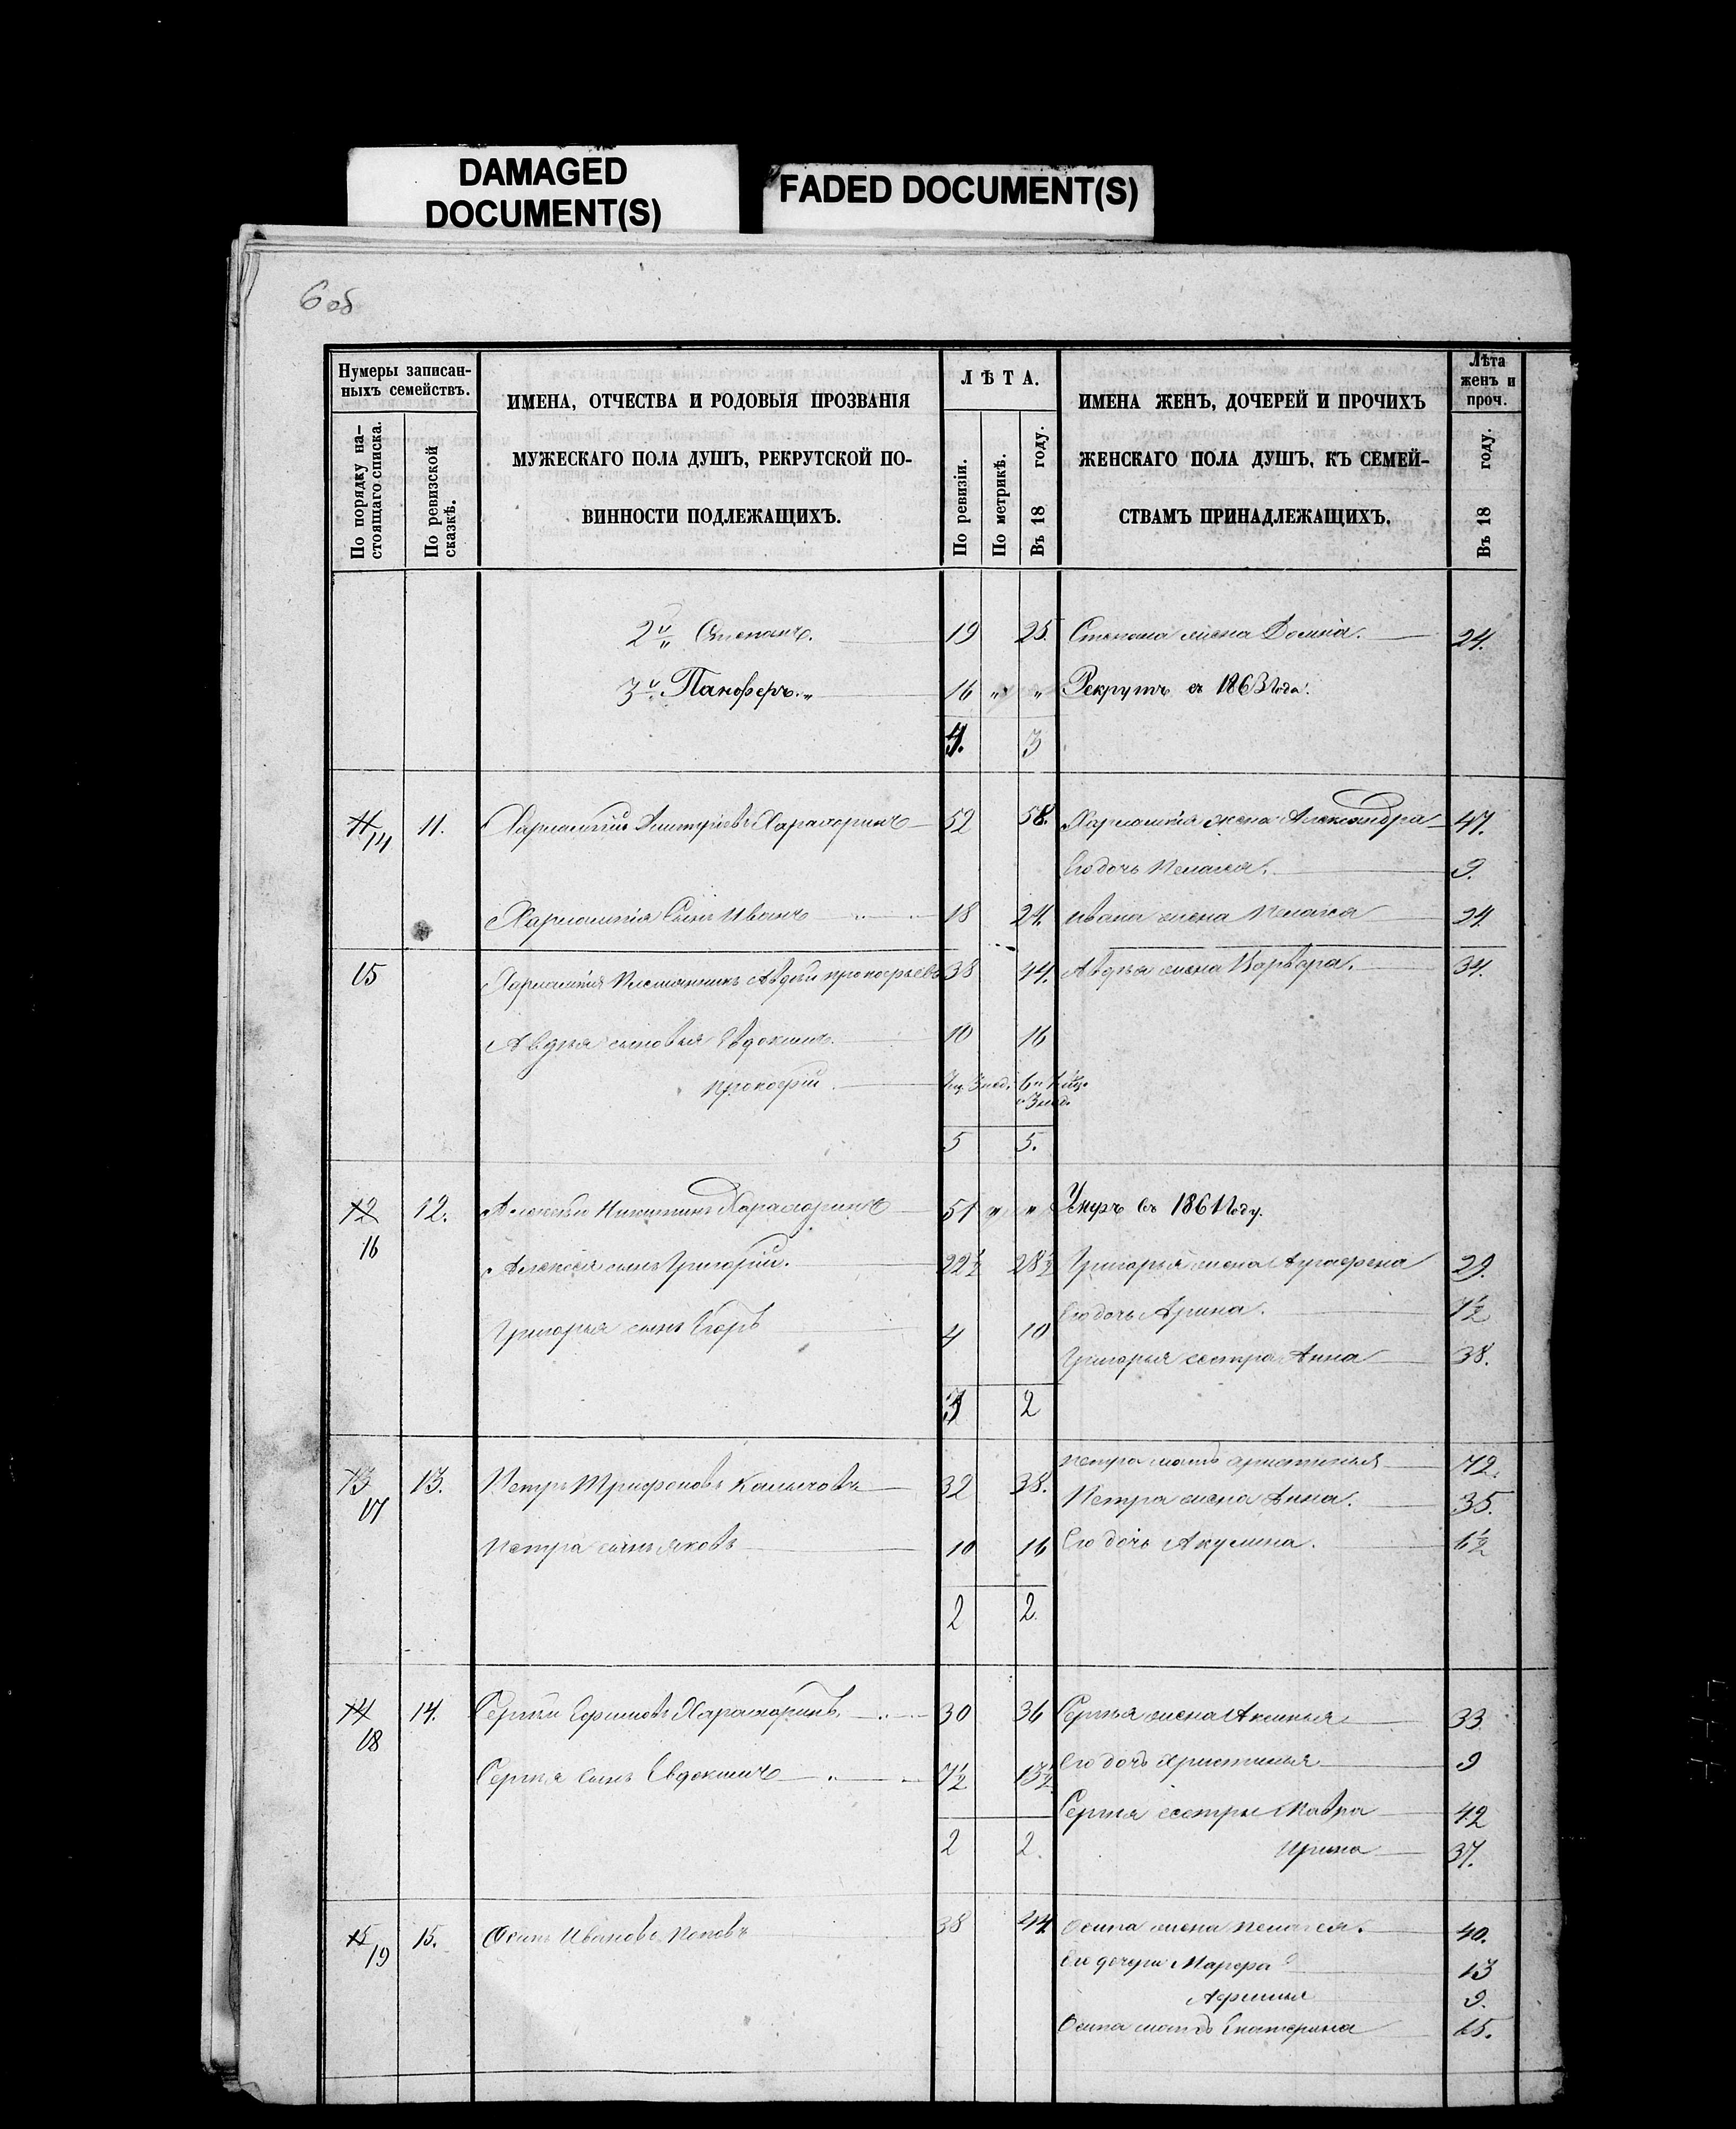 DAMAGED
DOCUMENT(S)
FADED DOCUMENT(S)
6 об
Нумеры записан-
ныхъ семействъ.
По порядку на-
стоящаго списка.
По ревизской
сказкѣ.
ИМЕНА, ОТЧЕСТВА И РОДОВЫЯ ПРОЗВАНІЯ
МУЖЕСКАГО ПОЛА ДУШЪ, РЕКРУТСКОЙ ПО-
ВИННОСТИ ПОДЛЕЖАЩИХЪ.
ЛѢТА.
По ревизіи.
По метрикѣ.
Въ 18 году.
ИМЕНА ЖЕНЪ, ДОЧЕРЕЙ И ПРОЧИХЪ
ЖЕНСКАГО ПОЛА ДУШЪ, КЪ СЕМЕЙ-
СТВАМЪ ПРИНАДЛЕЖАЩИХЪ.
Лѣта
женъ и
проч.
Въ 18 году.
2й Степанъ. 19 25. Степана жена Домна. 24.
3й Панферъ. 16 " " Рекрутъ съ 1863 года.
4. 3
11 14 11. Харлампій Дмитріевъ 52 58. Харлампія жена Александра 47.
Его дочь Пелагея. 9.
Харлампія Сынъ Иванъ 18 24. Ивана жена Пелагея 24
15 Харлампія Племянникъ Авдѣй прокофьевъ 38 44. Авдѣя жена Варвара. 34.
Авдѣя сыновья Евдокимъ 10 16
прокофій 7 м. 3 нед. 6 " 7 мѣс.
" 3 нед.
5 5.
12 16 12. Алексѣй Никитинъ 51 " " Умеръ въ 1861 году.
Алексѣя сынъ Григорій. 22½ 28½ Григорья жена Аграфена 29.
Его дочь Арина. 7½
Григорья сынъ Егоръ 4 10
Григорья сестра Анна 38.
3 2
Петра мать христинья 72.
13 17 13. Петръ Трифоновъ 32 38. Петра жена Анна. 35.
Петра сынъ яковъ 10 16 Его дочь Акулина. 6½
2 2
14 18 14. Сергѣй Ефимовъ 30 36 Сергѣя жена Аксинья 33
Его дочь христинья 9
Сергѣя Сынъ Евдокимъ 7½ 13½
Сергѣя сестры Мавра 42
2 2. Ирина 37.
15 19 15. Осипъ Ивановъ Поповъ 38 44 Осипа жена пелагея. 40.
Его дочери Марфа 13
Афимья 9.
Осипа мать Екатерина 65.